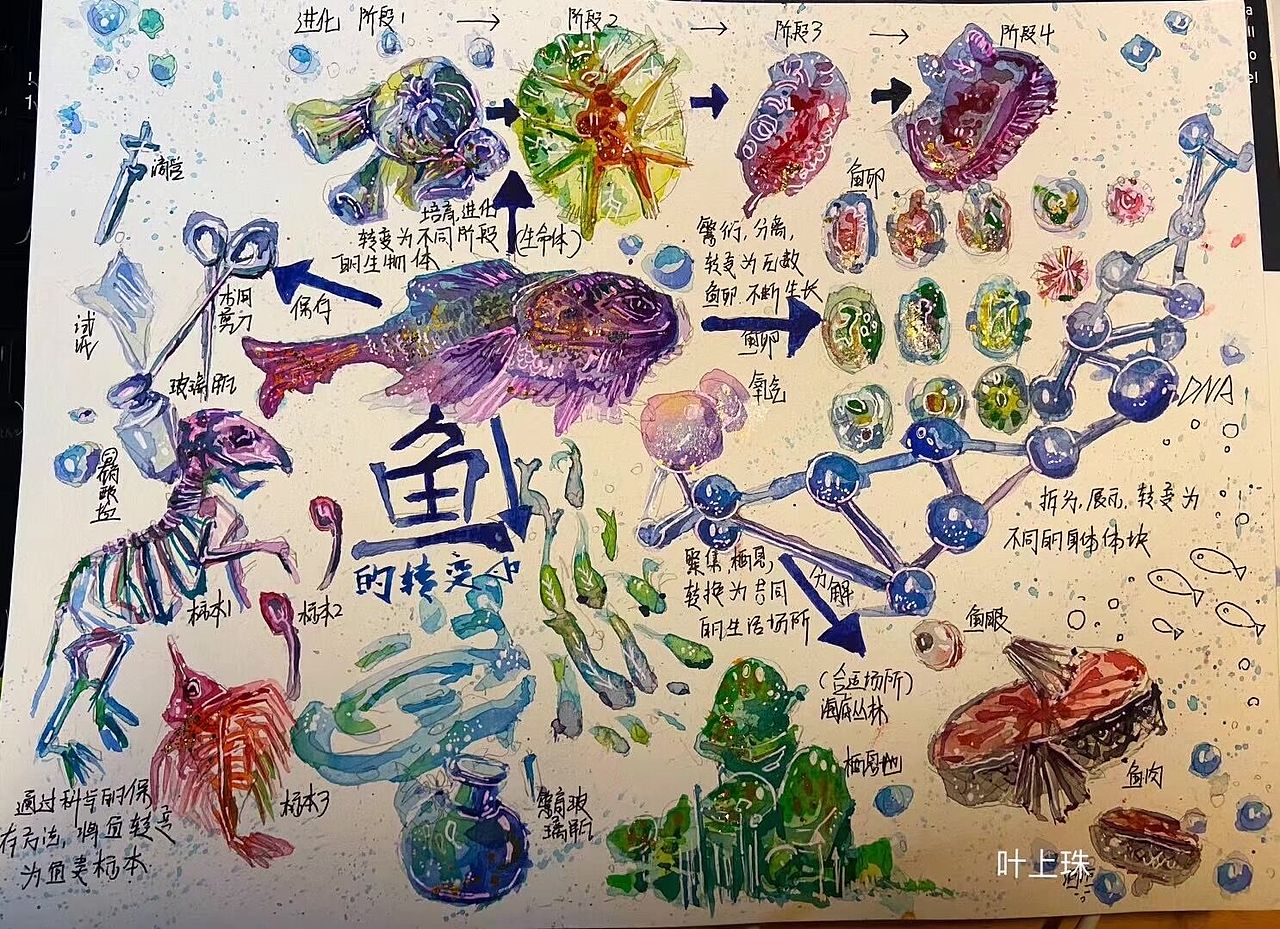 进化 阶段1 → 阶段2 → 阶段3 → 阶段4
滴管
培育,进化
转变为不同阶段
的生物体
(生命体)
繁衍,分离,
转变为无数
鱼卵.不断生长
鱼卵
鱼卵
保存
剪刀
玻璃瓶
氧气
DNA
鱼
的转变
拆分,展示,转变为
不同的身体体块
聚集栖息,
转换为共同
的生活场所
分解
鱼眼
海底丛林
栖息地
鱼肉
标本1
标本2
标本3
通过科学的保
存方法,将鱼转变
为鱼类标本
玻
璃瓶
叶上珠